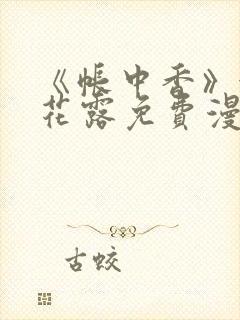 《帐中香》
花露免費漫
古蛟